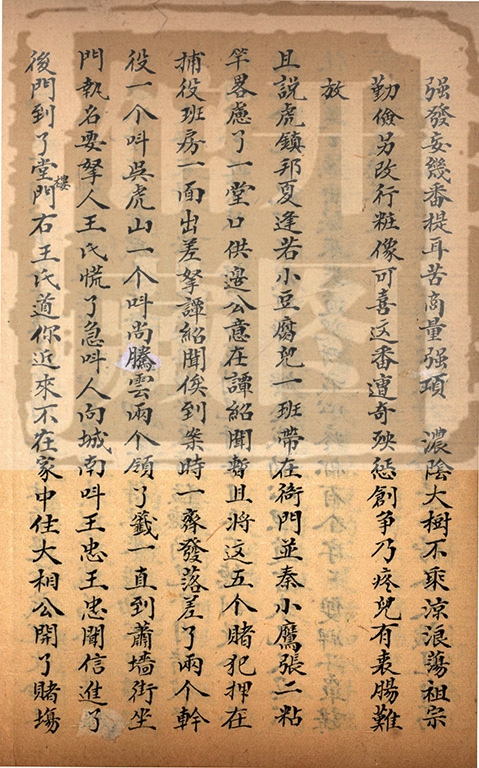 强發妄幾番提耳苦商量强項　濃陰大樹不乘涼浪蕩祖宗
勤儉另改行粧像可喜这番遭奇殃惩創争乃疼兒有衷腸難
放
且説虎鎮邦夏逢若小豆腐兒一班帶在衙門並秦小鷹張二粘
竿畧慮了一堂口供邊公意在譚紹聞暫且將这五个賭犯押在
捕役班房一面出差拏譚紹聞俟到案時一齊發落差了兩个幹
役一个呌吳虎山一个呌尚騰雲兩个領了籖一直到蕭墻街坐
門執名要拏人王氏慌了急呌人向城南呌王忠王忠聞信進了
後門到了堂樓門右王氏道你近來不在家中住大相公開了賭場